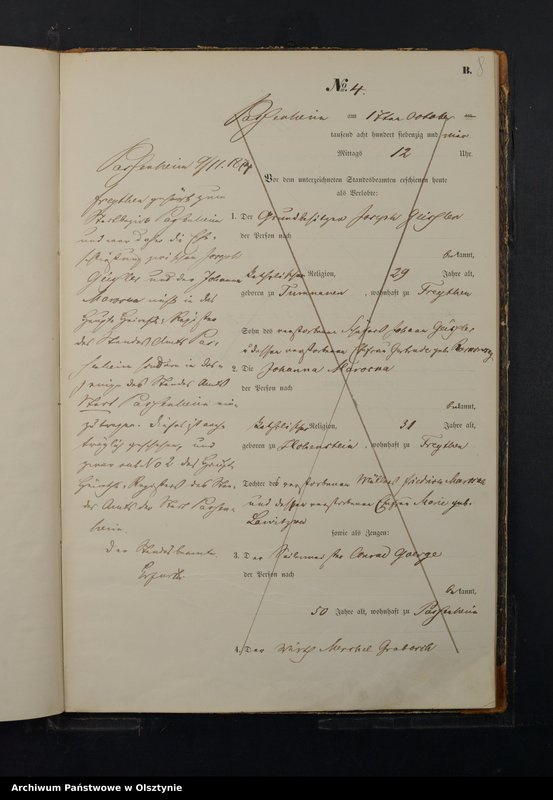 B. 8
No. 4.
Passenheim am 17ten October ein
tausend acht hundert siebenzig und vier
Mittags 12 Uhr.
Vor dem unterzeichneten Standesbeamten erschienen heute
als Verlobte:
1. Der Grundbesitzer Joseph Geissler
der Person nach
bekannt,
katholischer Religion, 29 Jahre alt,
geboren zu , wohnhaft zu Freythen
Sohn des verstorbenen Johann
und dessen verstorbenen Ehefrau Gertrude geb.
2. Die Johanna Marocna
der Person nach
bekannt,
katholischer Religion, 31 Jahre alt,
geboren zu Hohenstein, wohnhaft zu Freythen
Tochter des verstorbenen Müllers Friedrich
und dessen verstorbenen Ehefrau Marie geb.
sowie als Zeugen:
3. Der Conrad Goerge
der Person nach
bekannt,
50 Jahre alt, wohnhaft zu Passenheim
4. Der Wirth Michael
Passenheim 9/11. 1874
Freythen gehört zum
Passenheim
und war daher die Ehe-
schließung zwischen Joseph
Geissler und der Johanna
Marocna nicht in das
Haupt Heiraths-Register
des Standes Amts Pas-
senheim sondern in das-
jenige des Standes Amts
Stadt Passenheim ein-
zutragen. Dieses ist nach-
träglich geschehen, und
zwar sub No 2 des Haupt-
Heiraths-Registers des Stan-
des Amts der Stadt Passen-
heim.
Der Standesbeamte.
Archiwum Państwowe w Olsztynie